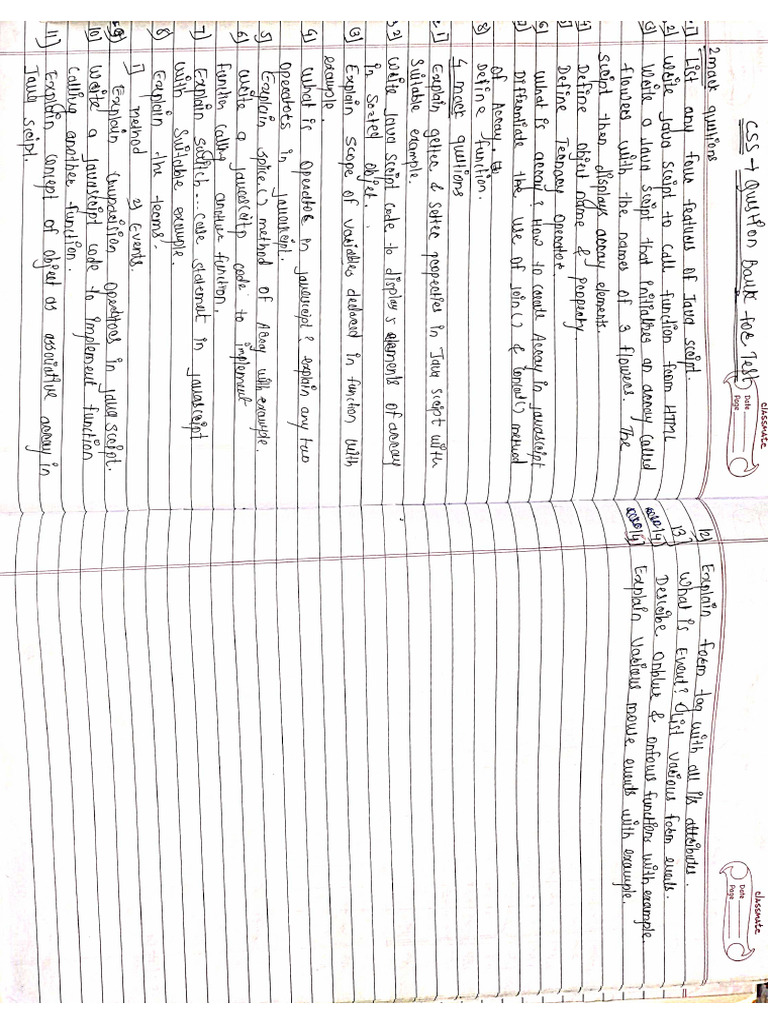 classmate
Date
Page
CSS → Question Bank for Test
2 mark qustions
1] List any four features of Java script.
2] Write Java script to call function from HTML
3] Write a Java script that initializes an array called
flowers with the names of 3 flowers. The
script then displays array elements.
4] Define object name & property
5] Define Ternary Operator.
6] What is array? How to create Array in javascript
7] Differentiate the use of join() & concat() method
of Array.
8] Define function.
4 mark qustions
1] Explain getter & setter properties in Java script with
Suitable example.
2] Write Java script code to display 5 elements of array
in sorted object.
3] Explain scope of variables declared in function with
example.
4] What is operator in javascript? explain any two
operators in javascript.
5] Explain splice() method of Array with example.
6] write a javascritp code to implement
function calling another function.
7] Explain switch... case statement in javascript
with suitable example.
8] Explain the teams.
1] method 2] Events.
9] Explain Comparision Operators in java script.
10] Write a javascript code to implement function
calling another function.
11] Explain concept of object as associative array in
Java script.
classmate
Date
Page
12] Explain form tag with all it's attributes.
13] What is Event? List various form events.
14] Describe onblur & onfocus functions with example
Explain various mouse events with example.